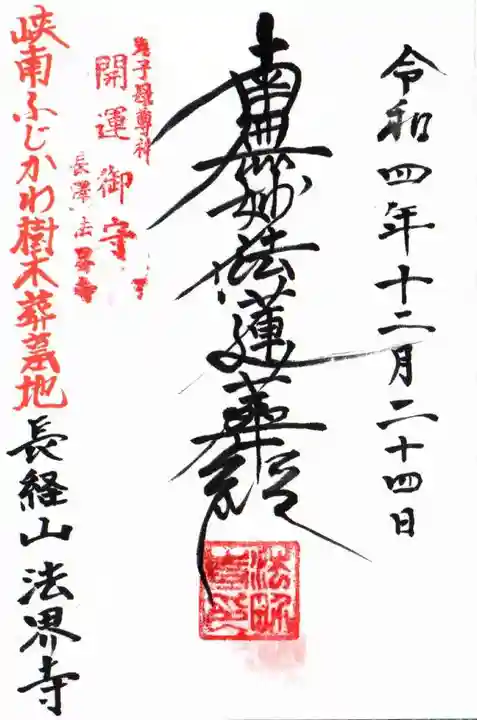 令和四年十二月二十四日
南無妙法蓮華経
鬼子母尊神
開運御守
長澤法界寺
峡南ふじかわ樹木葬墓地
長経山法界寺